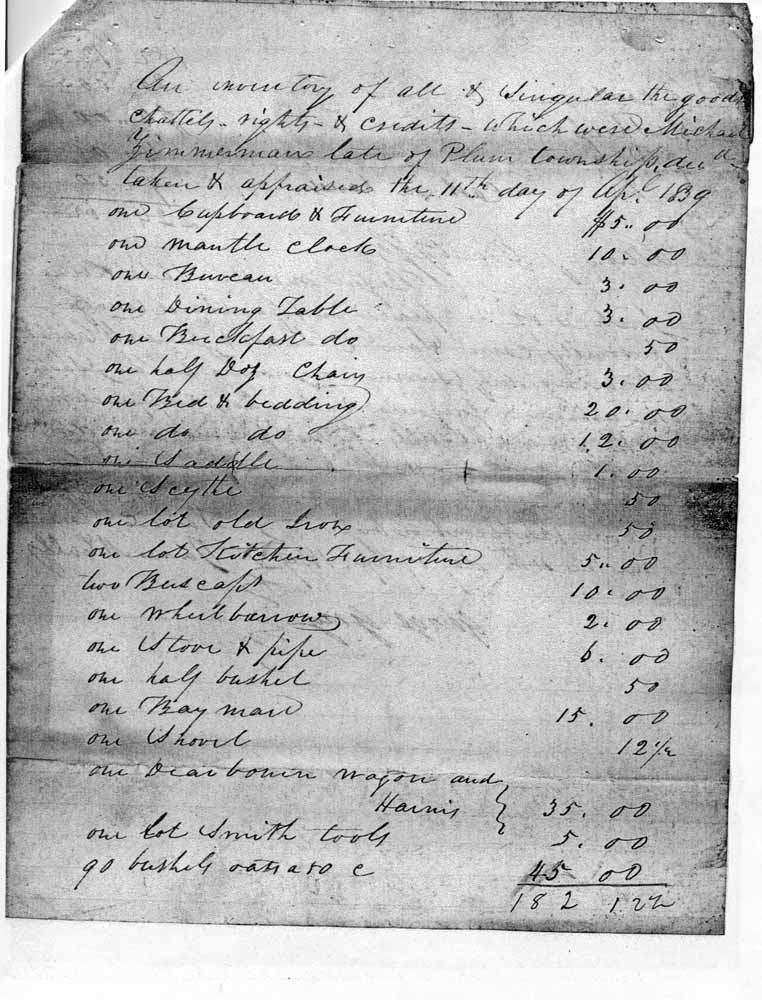 An inventory of all & Singular the goods
chattels - rights - & credits - which were Michael
Zimmerman late of Plum township, dec'd
taken & appraised the 11th day of Ap. 1839
one Cupboard & Furniture $5.. 00
one mantle clock 10. 00
one Bureau 3. 00
one Dining Table 3. 00
one Breckfast do 50
one half Doz Chairs 3. 00
one Bed & bedding 20. 00
one do do 12. 00
one Saddle 1. 00
one Scythe 50
one lot old Iron 50
one lot Kitchen Furniture 5.. 00
two 10. 00
one wheelbarrow 2. 00
one Stove & pipe 6. 00
one half bushel 50
one Bay mare 15. 00
one Shovel 12 1/2
one Dearbourn wagon and
Harnis } 35. 00
one lot Smith tools 5. 00
90 bushels oats a 50 c 45 00
182 12 1/2